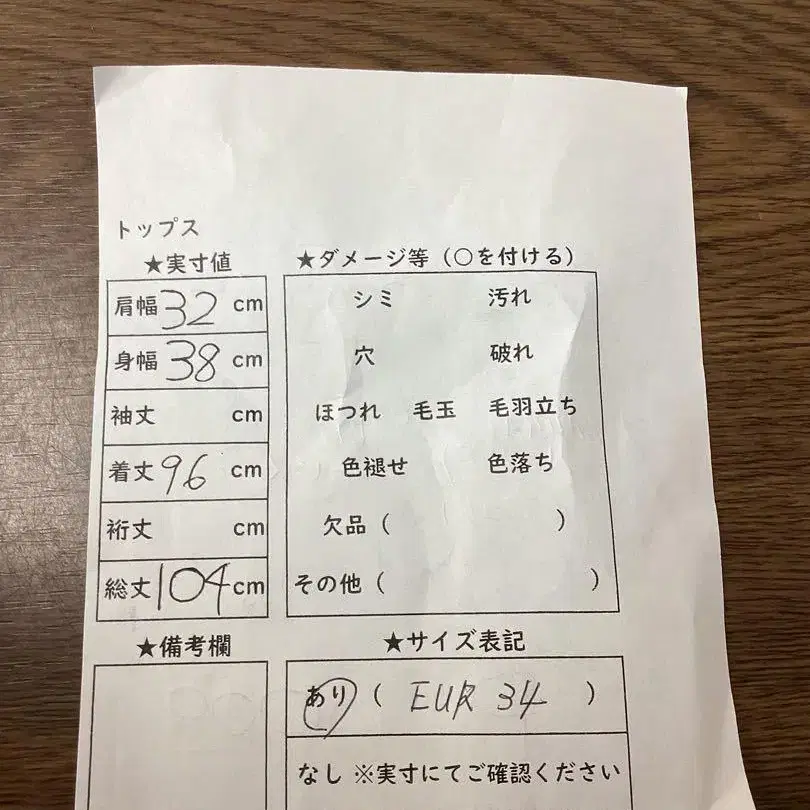 トップス
★実寸値
肩幅 32 cm
身幅 38 cm
袖丈 cm
着丈 96 cm
裄丈 cm
総丈 104 cm
★ダメージ等（〇を付ける）
シミ 汚れ
穴 破れ
ほつれ 毛玉 毛羽立ち
色褪せ 色落ち
欠品（ ）
その他（ ）
★備考欄
★サイズ表記
あり（ EUR 34 ）
なし ※実寸にてご確認ください